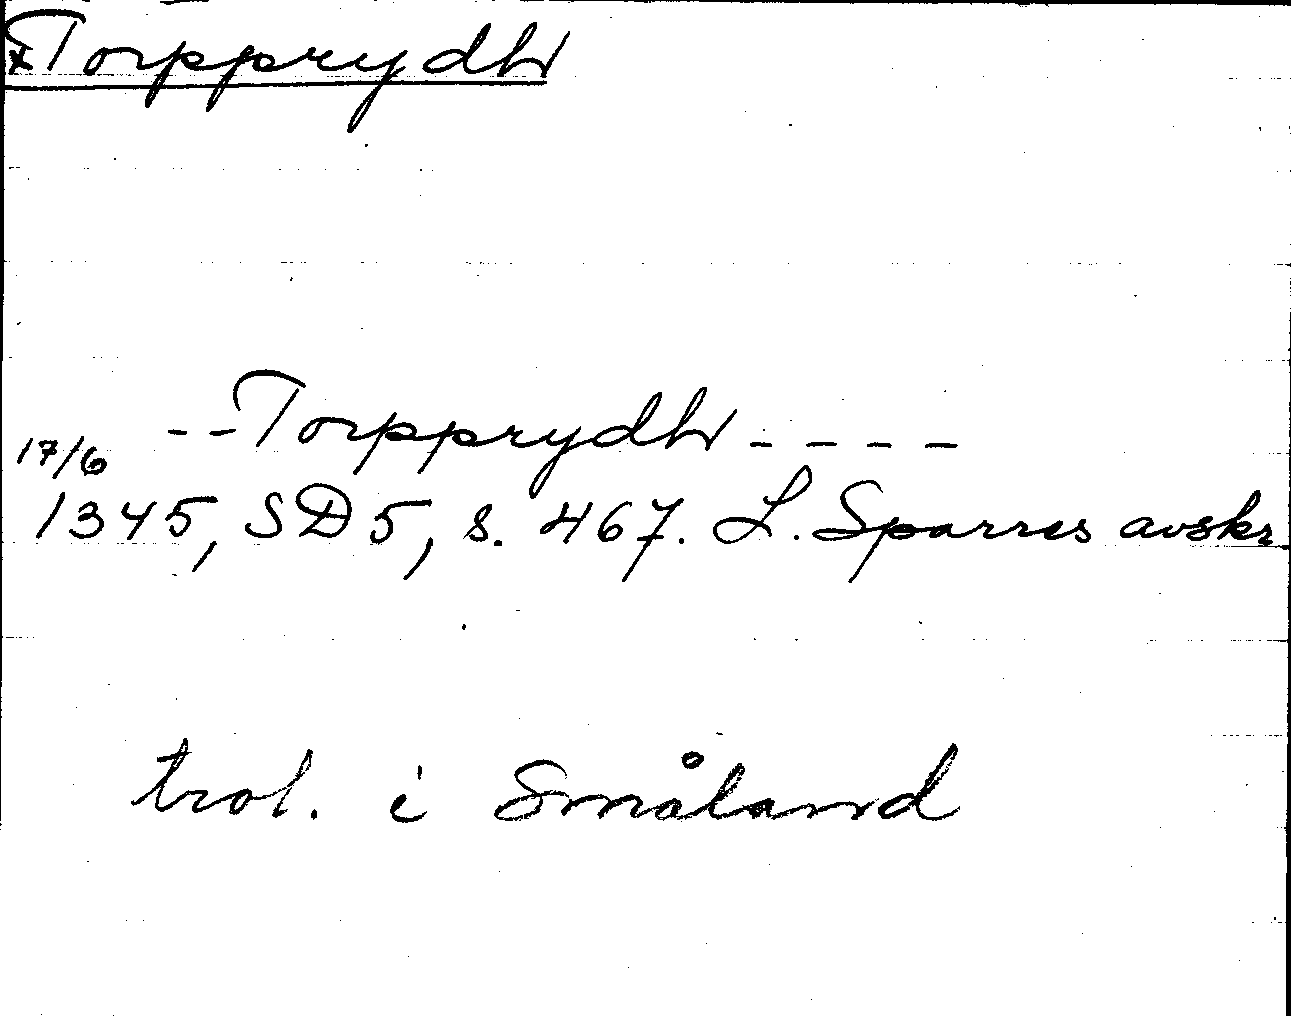 xTorpprydh
--Torpprydh----
17/6
1345, SD5, s. 467. L. Sparres avskr.
trol. i Småland